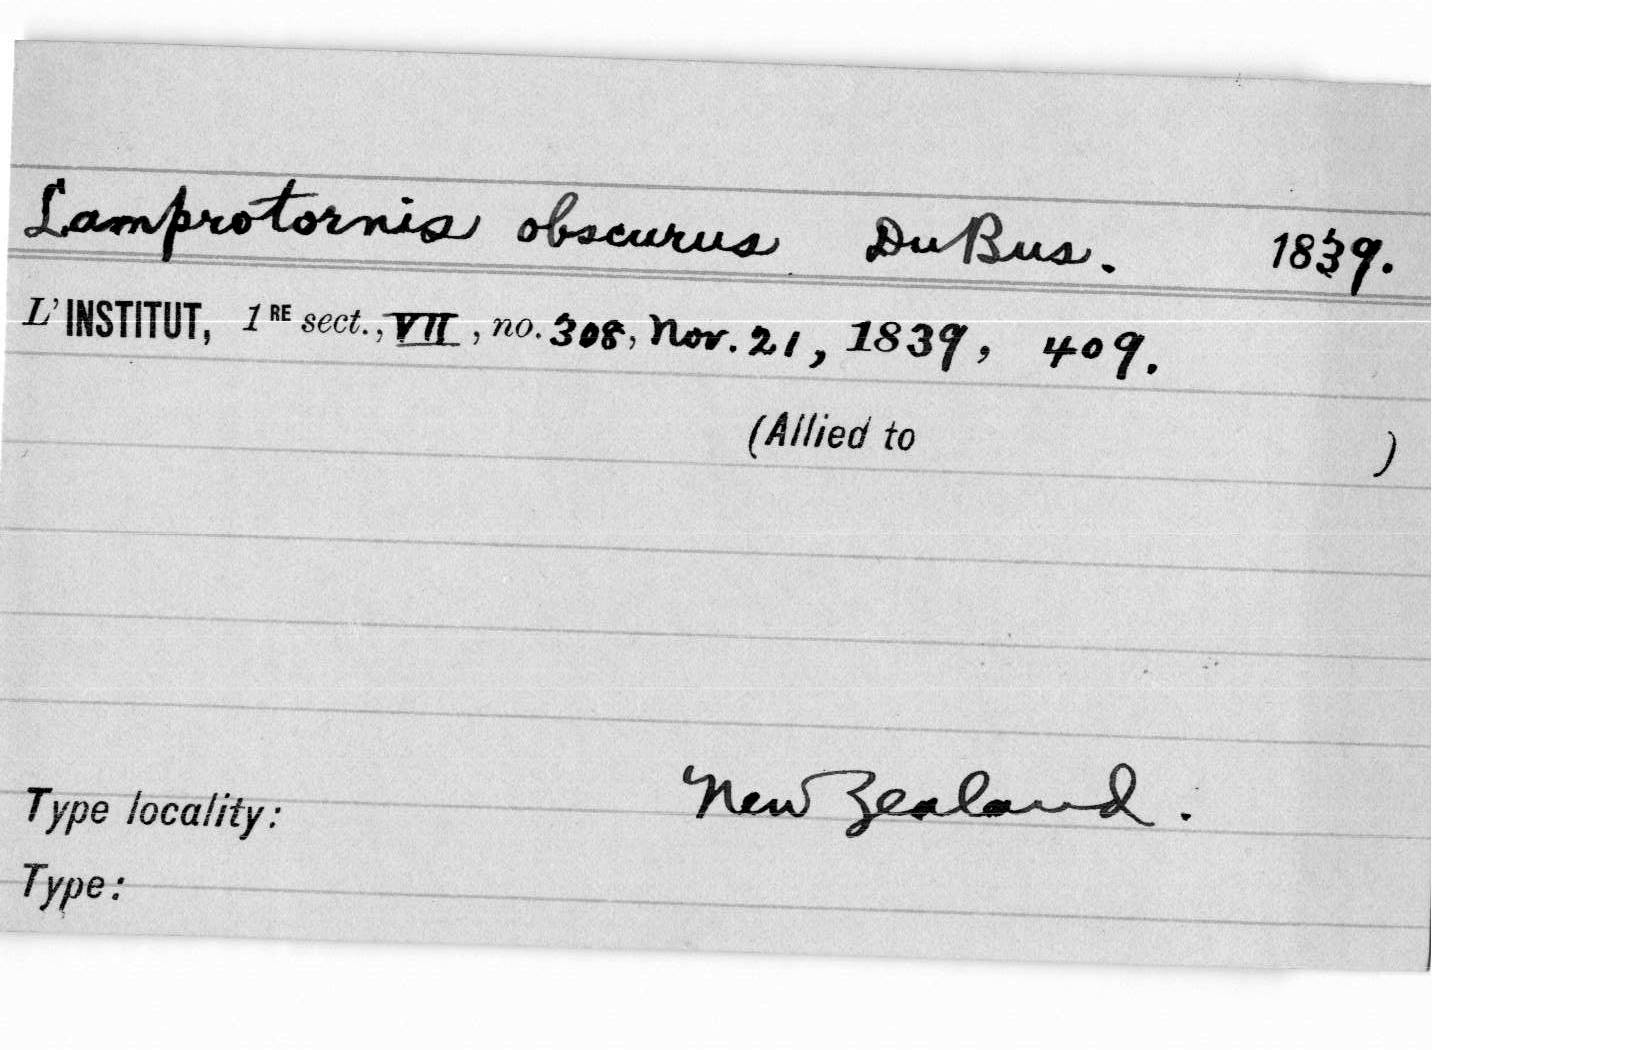 Lamprotornis obscurus DuBus. 1839.
L' INSTITUT, 1RE sect., VII, no. 308, Nov. 21, 1839, 409.
(Allied to )
Type locality: New Zealand.
Type: